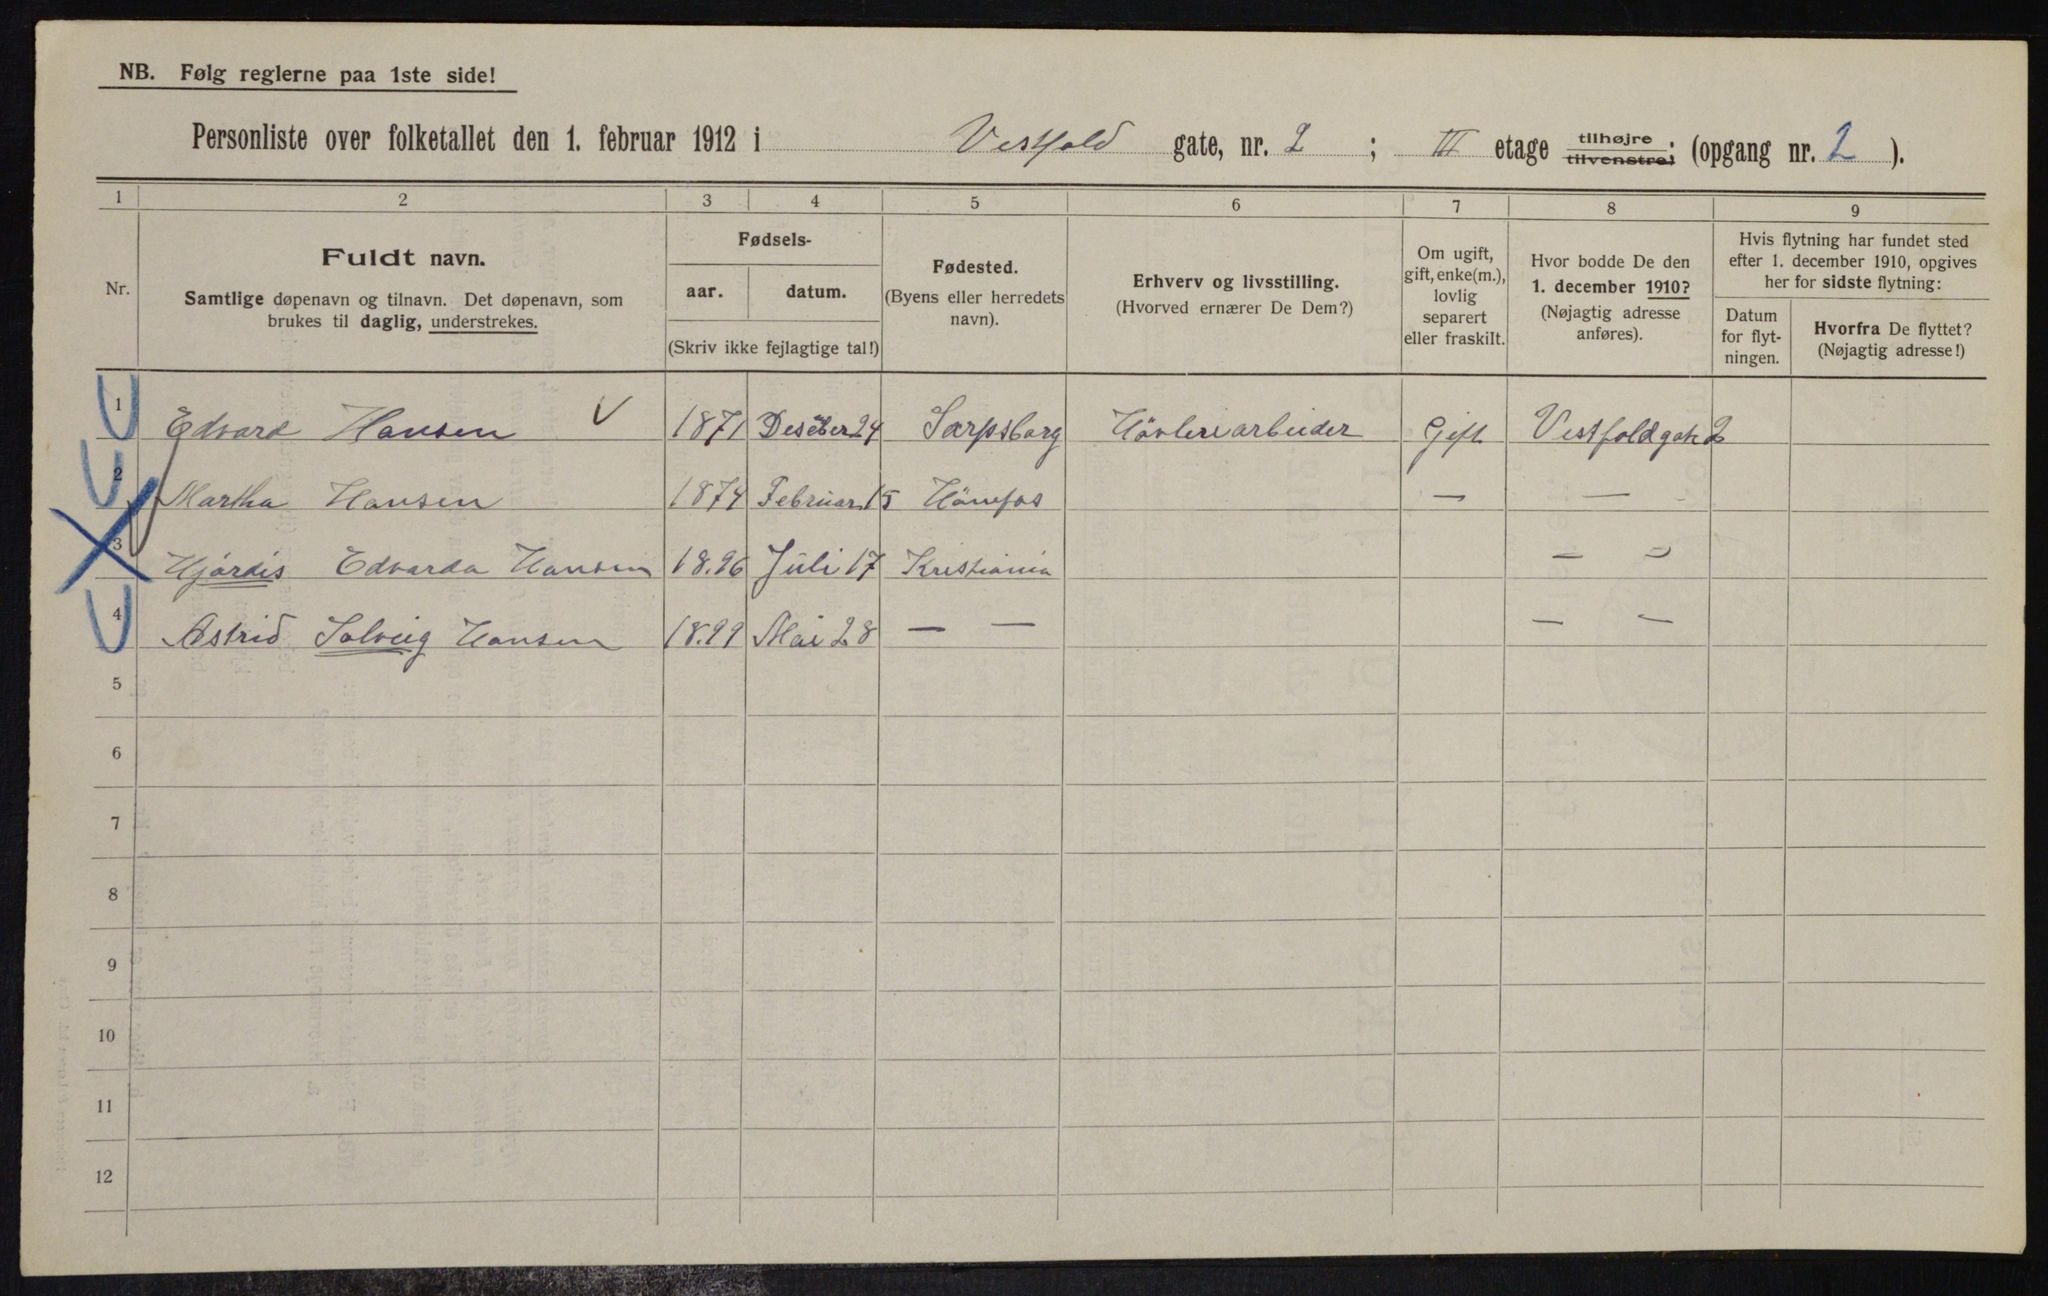 NB. Følg reglerne paa 1ste side!
Personliste over folketallet den 1. februar 1912 i Vestfold gate, nr. 2 ; III etage tilhøjre tilvenstre; (opgang nr. 2 ).
1 2 3 4 5 6 7 8 9
Nr.
Fuldt navn.
Samtlige døpenavn og tilnavn. Det døpenavn, som
brukes til daglig, understrekes.
Fødsels-
aar. datum.
(Skriv ikke fejlagtige tal!)
Fødested.
(Byens eller herredets
navn).
Erhverv og livsstilling.
(Hvorved ernærer De Dem?)
Om ugift,
gift, enke(m.),
lovlig
separert
eller fraskilt.
Hvor bodde De den
1. december 1910?
(Nøjagtig adresse
anføres).
Hvis flytning har fundet sted
efter 1. december 1910, opgives
her for sidste flytning:
Datum
for flyt-
ningen.
Hvorfra De flyttet?
(Nøjagtig adresse!)
1 Edvard Hansen 1871 Deseber 24 Sarpsborg Høvleriarbeider Gift Vestfoldgate 2
2 Martha Hansen 1874 Februar 15 Hönefos — —
3 Hjørdis Edvarda Hansen 18.96 Juli 17 Kristiania — —
4 Astrid Solveig Hansen 18.99 Mai 28 — — — —
5
6
7
8
9
10
11
12